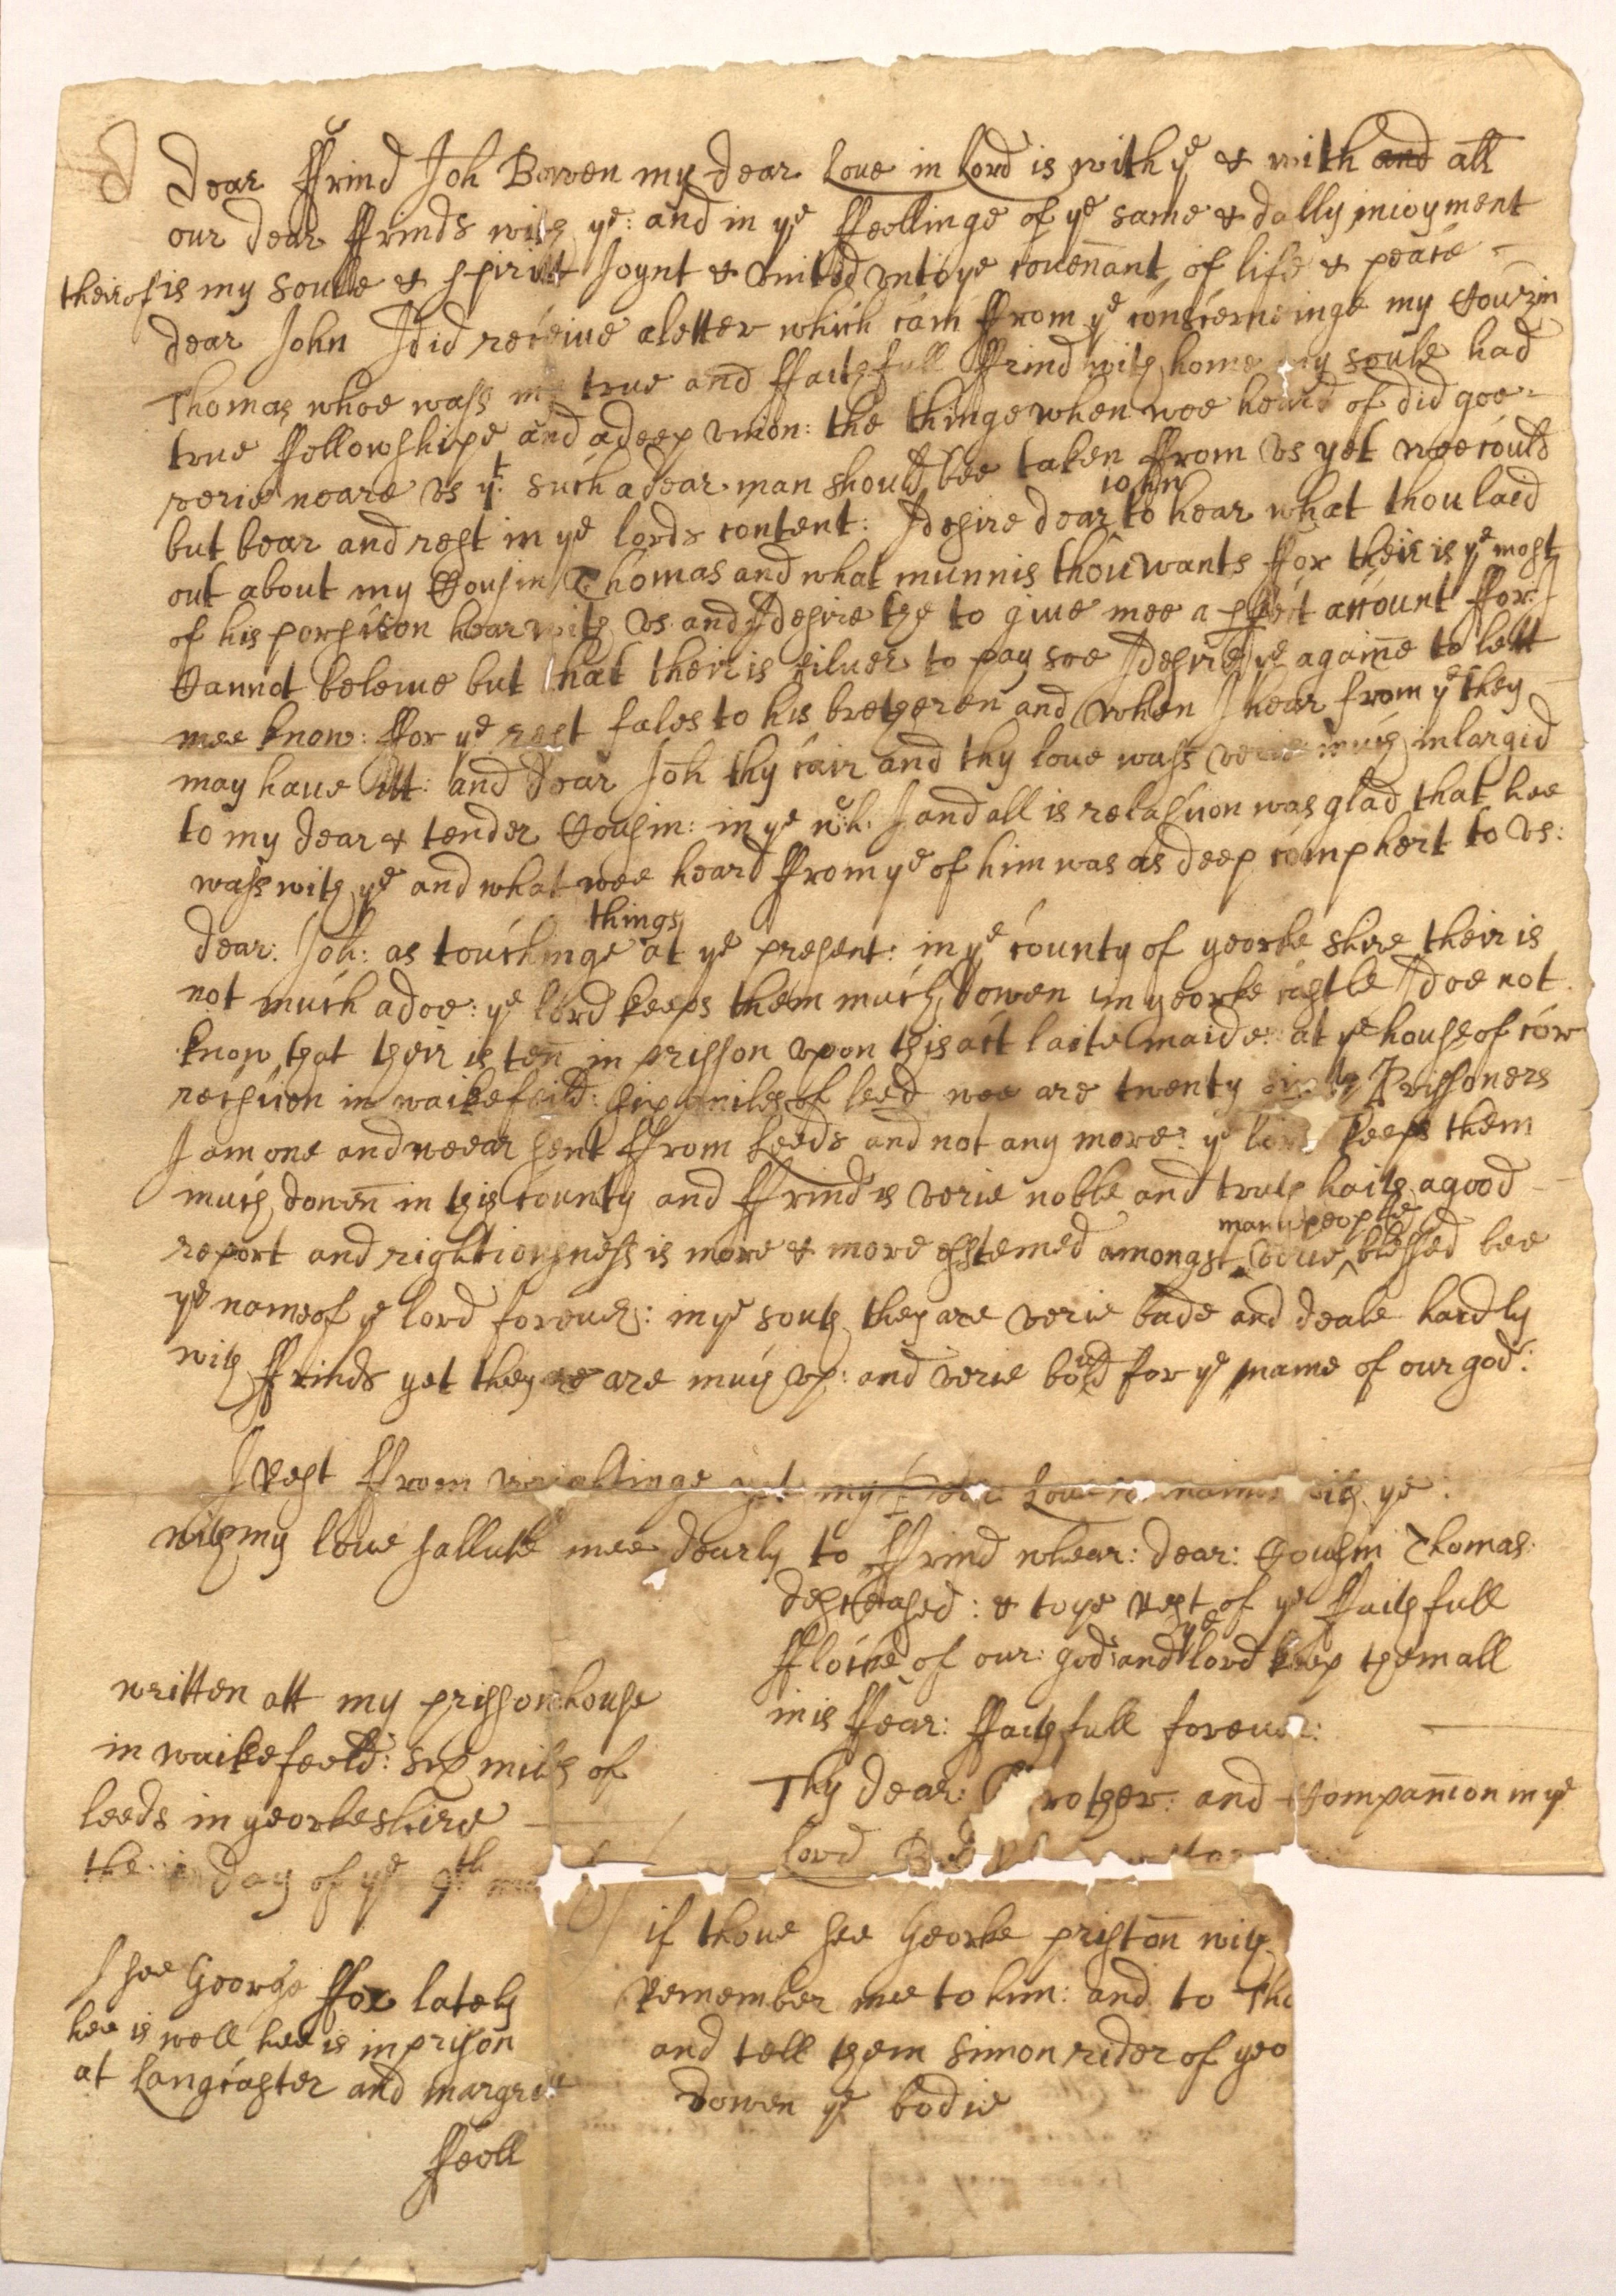 Dear ffrind Joh Bowen my dear Love in Lord is with ye & with and all
our dear ffrinds with ye: and in ye ffeellinge of ye same & dally inioyment
theirof is my soulle & spiritt Joynt & vnited vnto ye couennant of life & peace
dear John I did receiue a letter which cam ffrom ye conscerneinge my Couzin
Thomas whoe wass my true and ffaithfull ffrind with home my soule had
true ffellowshipe and a deep vnion: the thinge when wee heard of did goe
verie neare vs yt such a dear man should bee taken ffrom vs yet wee could
but bear and rest in ye lords content: I desire dear John to hear what thou laid
out about my Cousin Thomas and what munnis thou wants ffor their is ye most
of his porsison hear with vs and I desire the to giue mee a account ffor I
Cannot beleiue but that their is siluer to pay soe I desire ye againe to lett
mee know: ffor ye rest fales to his bretheren and when I hear from ye they
may haue itt: and dear Joh thy cair and thy loue wass verie much inlargid
to my dear & tender Cousin: in ye wch I and all is relasuon was glad that hee
wass with ye and what wee heard ffrom ye of him was as deep comphert to vs:
dear: Joh: as touchinge things at ye present: in ye county of yeorke shire their is
not much adoe: ye lord keeps them much dowen in yeorke castle I doe not
know that their is ten in prisson vpon this act laite maide: at ye house of cor
recsuon in waikefeild: six miles of leed wee are twenty Prissoners
I am one and wee ar sent ffrom Leeds and not any more: ye lord keeps them
much downe in this county and ffrinds verie noble and truth haith a good
report and rightiousness is more & more esstemed amongst verie many people blessed bee
ye name of ye lord foreuer: in ye south they are verie bade and deale hardly
with ffrinds yet they are are much vp: and verie bold for ye name of our god:
I rest ffrom my dear Loue remaines with ye:
with my loue sallute mee dearly to ffrind whear: dear: Cousin Thomas
desceased: & to ye rest of ye ffaithfull
fflocke of our: god: and ye lord keep them all
in is ffear: ffaithfull foreuer:
Thy dear: Brother: and Companion in ye
lord
written att my prisson house
in waikefeeld: six miles of
leeds in yeorkeshire
the day of ye 9th
I see George ffox lately
hee is well hee is in prison
at Langcaster and margrett
ffell
if thoue see Georke pristonn with
remember mee to him: and to Tho
and tell them simon rider of yeo
dowen ye bodie